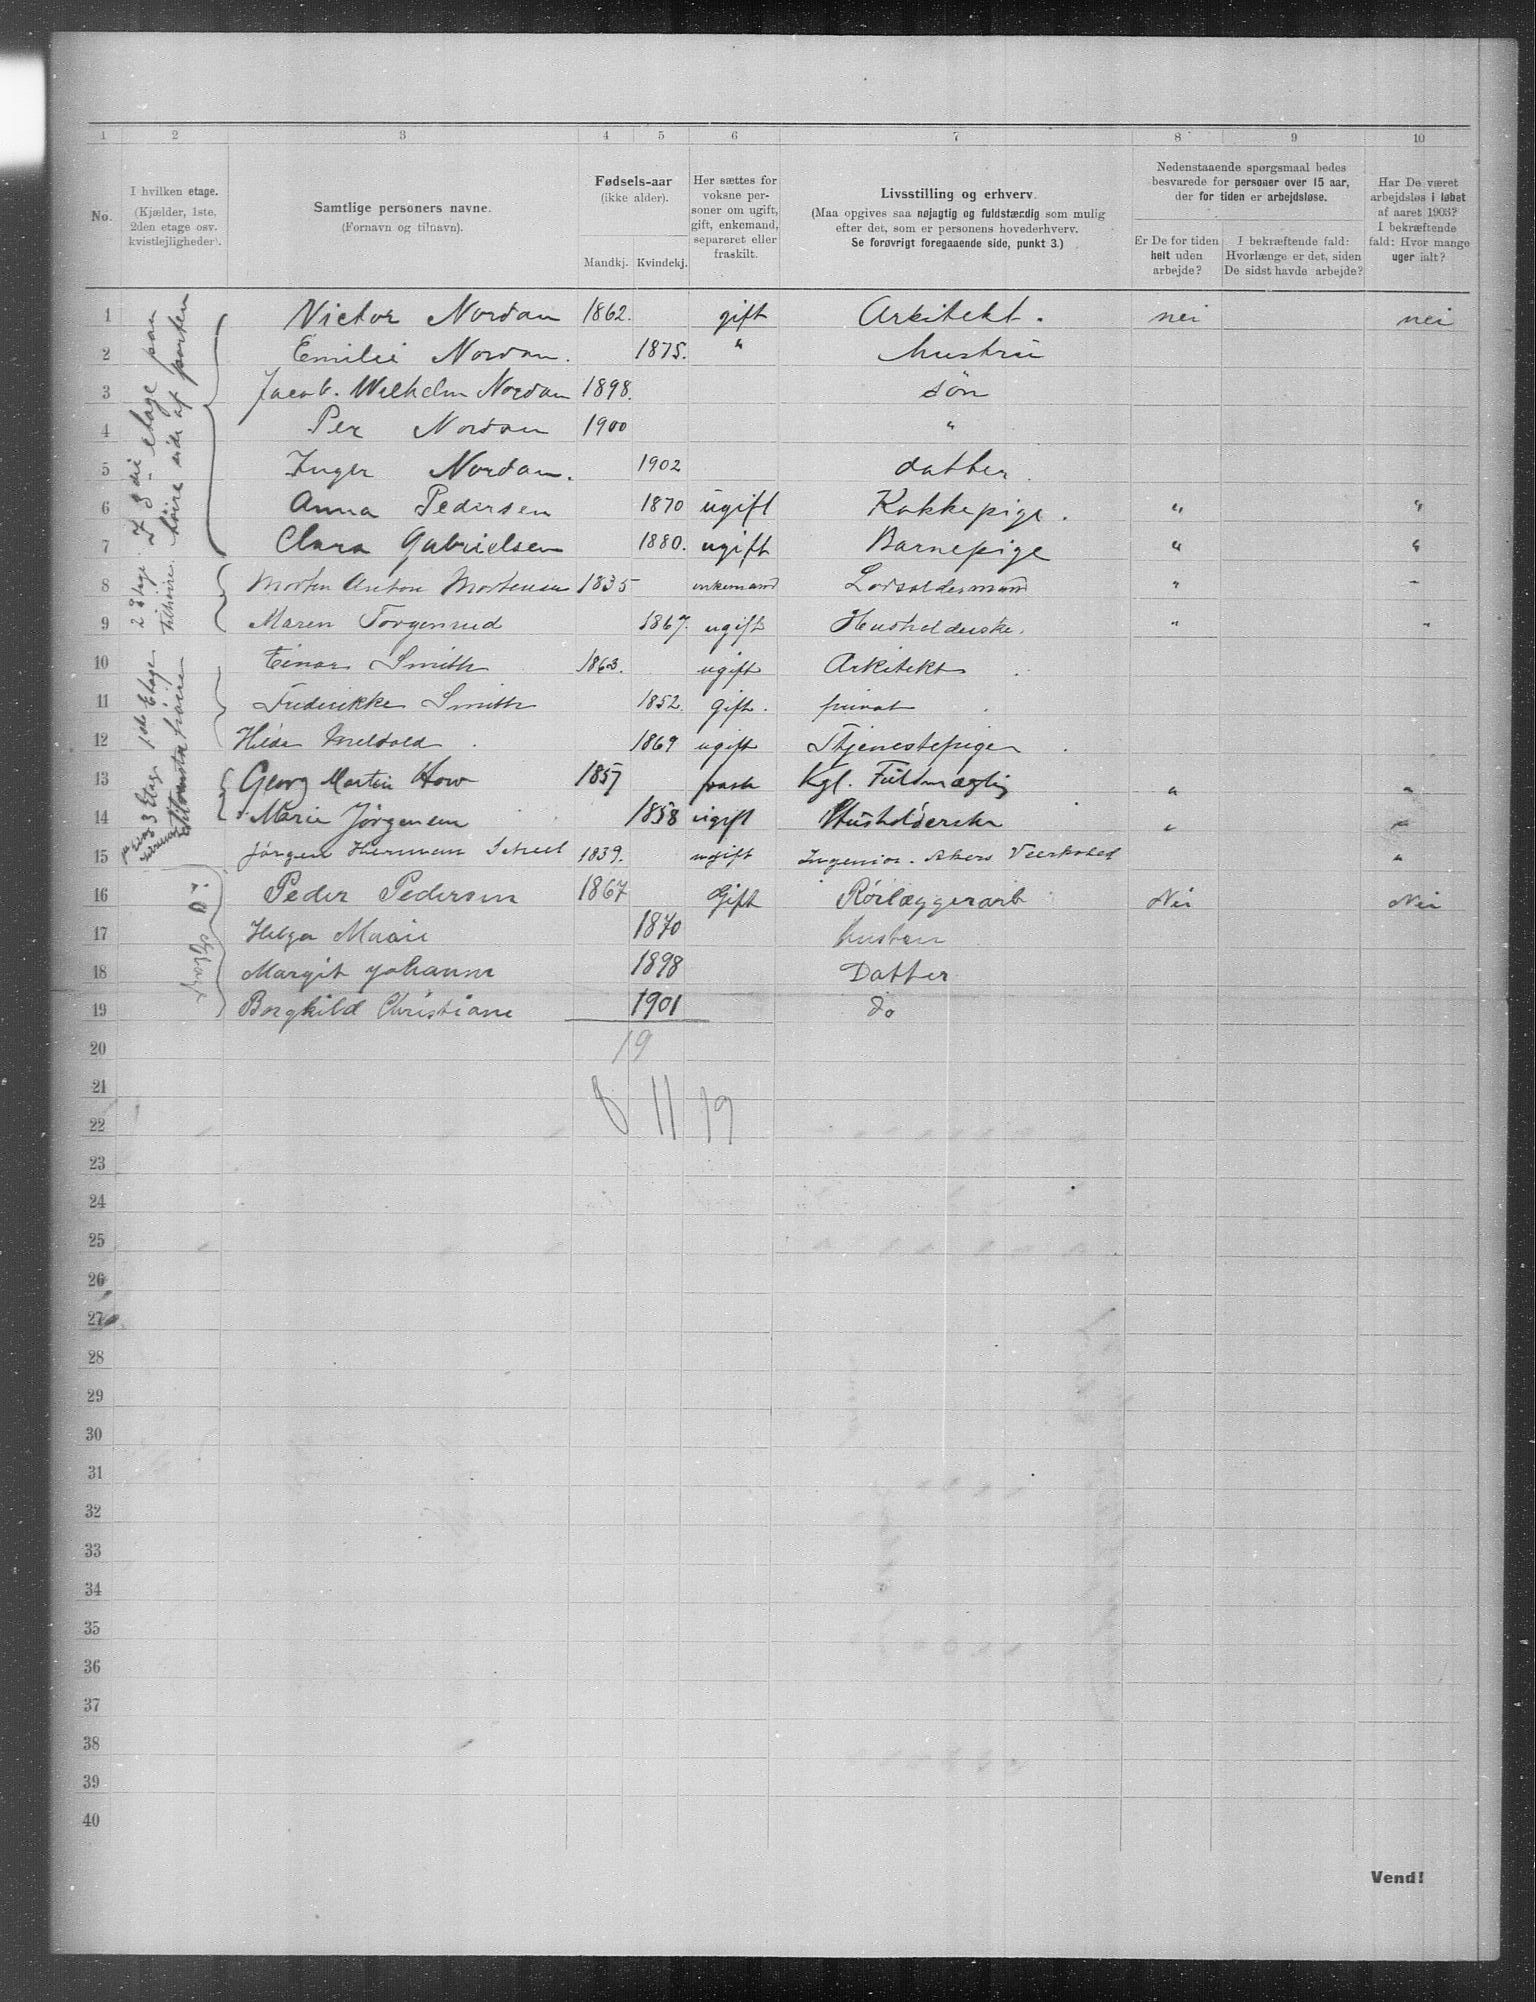 1 2 3 4 5 6 7 8 9 10
No.
I hvilken etage.
(Kjælder, 1ste, 2den etage osv. kvistlejligheder).
Samtlige personers navne.
(Fornavn og tilnavn).
Fødsels-aar
(ikke alder).
Mandkj. Kvindekj.
Her sættes for voksne personer om ugift, gift, enkemand, separeret eller fraskilt.
Livsstilling og erhverv.
(Maa opgives saa nøjagtig og fuldstændig som mulig efter det, som er personens hovederhverv.
Se forøvrigt foregaaende side, punkt 3.)
Nedenstaaende spørgsmaal bedes besvarede for personer over 15 aar, der for tiden er arbejdsløse.
Er De for tiden helt uden arbejde?
I bekræftende fald: Hvorlænge er det, siden De sidst havde arbejde?
Har De været arbejdsløs i løbet af aaret 1903? I bekræftende fald: Hvor mange uger ialt?
I 3die etage paa høire side af porten
1 Victor Nordan 1862. gift Arkitekt. nei nei
2 Emilie Nordan. 1875. " hustru
3 Jacob. Wilhelm Nordan 1898. søn
4 Per Nordan 1900 "
5 Inger Nordan. 1902 datter.
6 Anna Pedersen 1870 ugift Kokkepige. " "
7 Clara Gabrielsen 1880. ugift Barnepige " "
2 Etage tilhøire.
8 Morten Anton Mortensen 1835 enkemand Lodsoldermand " "
9 Maren Torgenrud 1867. ugift Husholderske. " "
1ste Etage
10 Einar Smith 1863. ugift Arkitekt
11 Frederikke Smith 1852. gift. privat
12 Hilda 1869 ugift Tjenestepige
3 Etage
13 Georg Martin How 1857 frask Kgl. Fuldmægtig " "
14 Marie Jørgensen 1858 ugift Husholderske " "
15 Jørgen Herman Scheel 1839. ugift Ingeniør. Akers Værksted "
16 Peder Pedersen 1867 Gift Rørlæggerarb Nei Nei
17 Helga Marie 1870 hustru
18 Margit Johanne 1898 Datter
19 Borghild Christiane 1901 do
20 19
21 8 11 19
22
23
24
25
26
27
28
29
30
31
32
33
34
35
36
37
38
39
40
Vend!